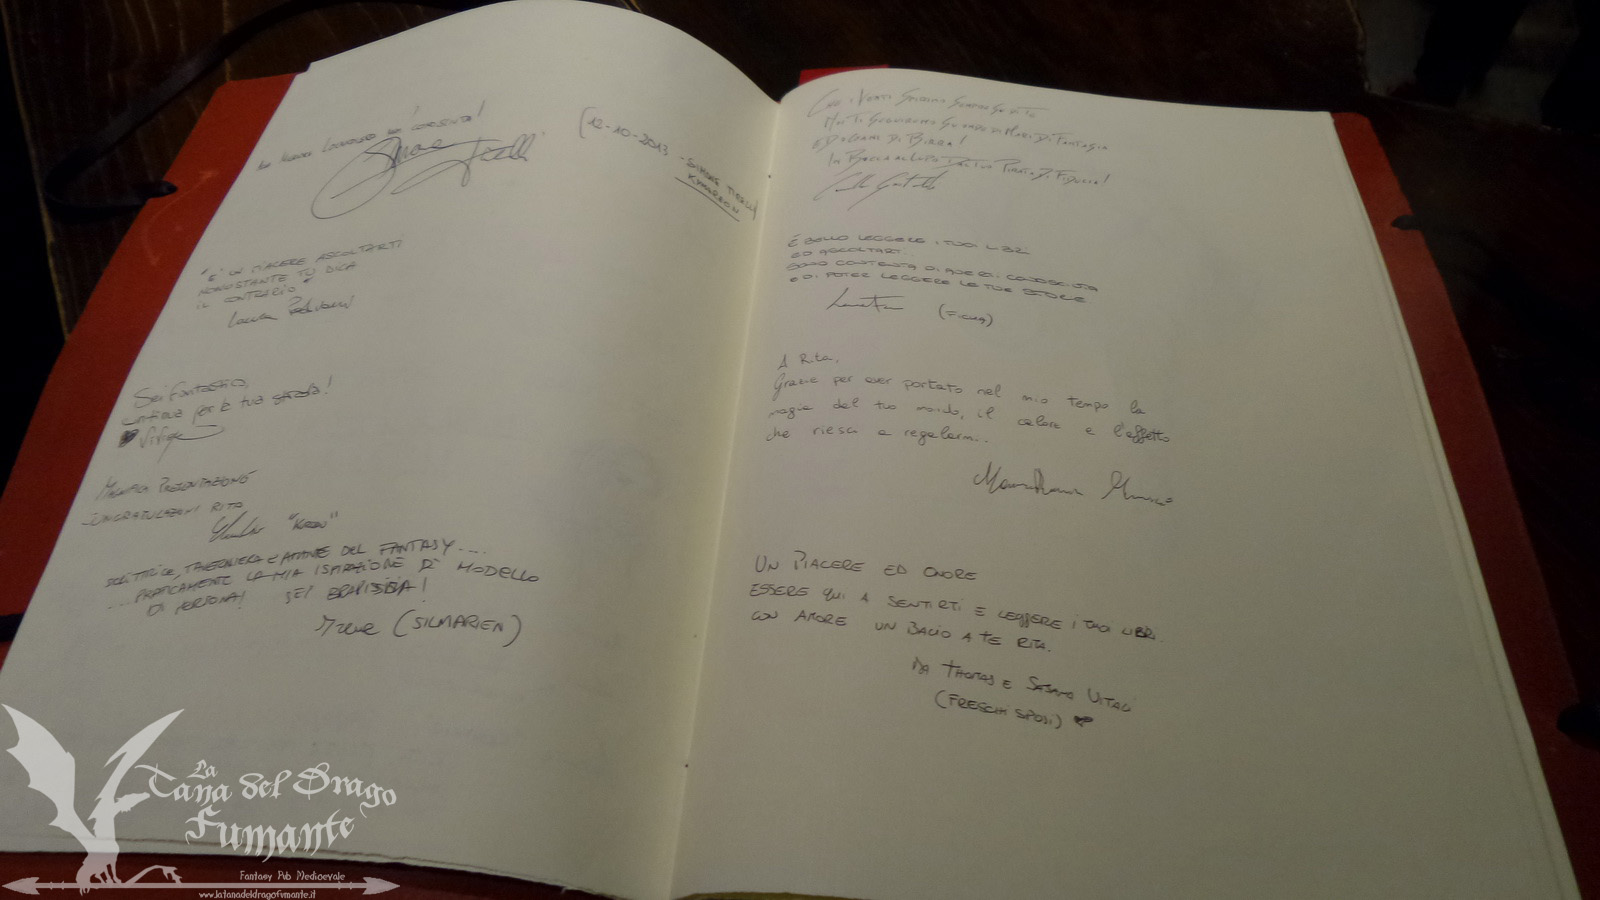 [12-10-2013 - SIMONE
"È UN PIACERE ASCOLTARTI
NONOSTANTE TU DICA
IL CONTRARIO"
Laura
Sei fantastica,
continua per la tua strada!
MAGNIFICA PRESENTAZIONE
CONGRATULAZIONI RITA
SCRITTRICE, TAVERNIERA E AMANTE DEL FANTASY....
....PRATICAMENTE LA MIA ISPIRAZIONE DI MODELLO
DI PERSONA! SEI BRAVISSIMA!
(SILMARIEN)
CHE I VENTI SPIRINO SEMPRE
MARI DI FANTASIA
DI BIRRA!
IN BOCCA AL LUPO DAL TUO PIRATA DI FIDUCIA!
È BELLO LEGGERE I TUOI LIBRI
ED ASCOLTARTI.
SONO CONTENTA DI AVERTI CONOSCIUTA
E DI POTER LEGGERE LE TUE STORIE
A Rita,
Grazie per aver portato nel mio tempo la
magia del tuo mondo, il calore e l'affetto
che riesci a regalarmi..
UN PIACERE ED ONORE
ESSERE QUI A SENTIRTI E LEGGERE I TUOI LIBRI.
CON AMORE UN BACIO A TE RITA.
DA THOMAS E VITALI
(FRESCHI SPOSI)
La
Tana del Drago
Fumante
Fantasy Pub Medioevale
www.latanadeldragofumante.it